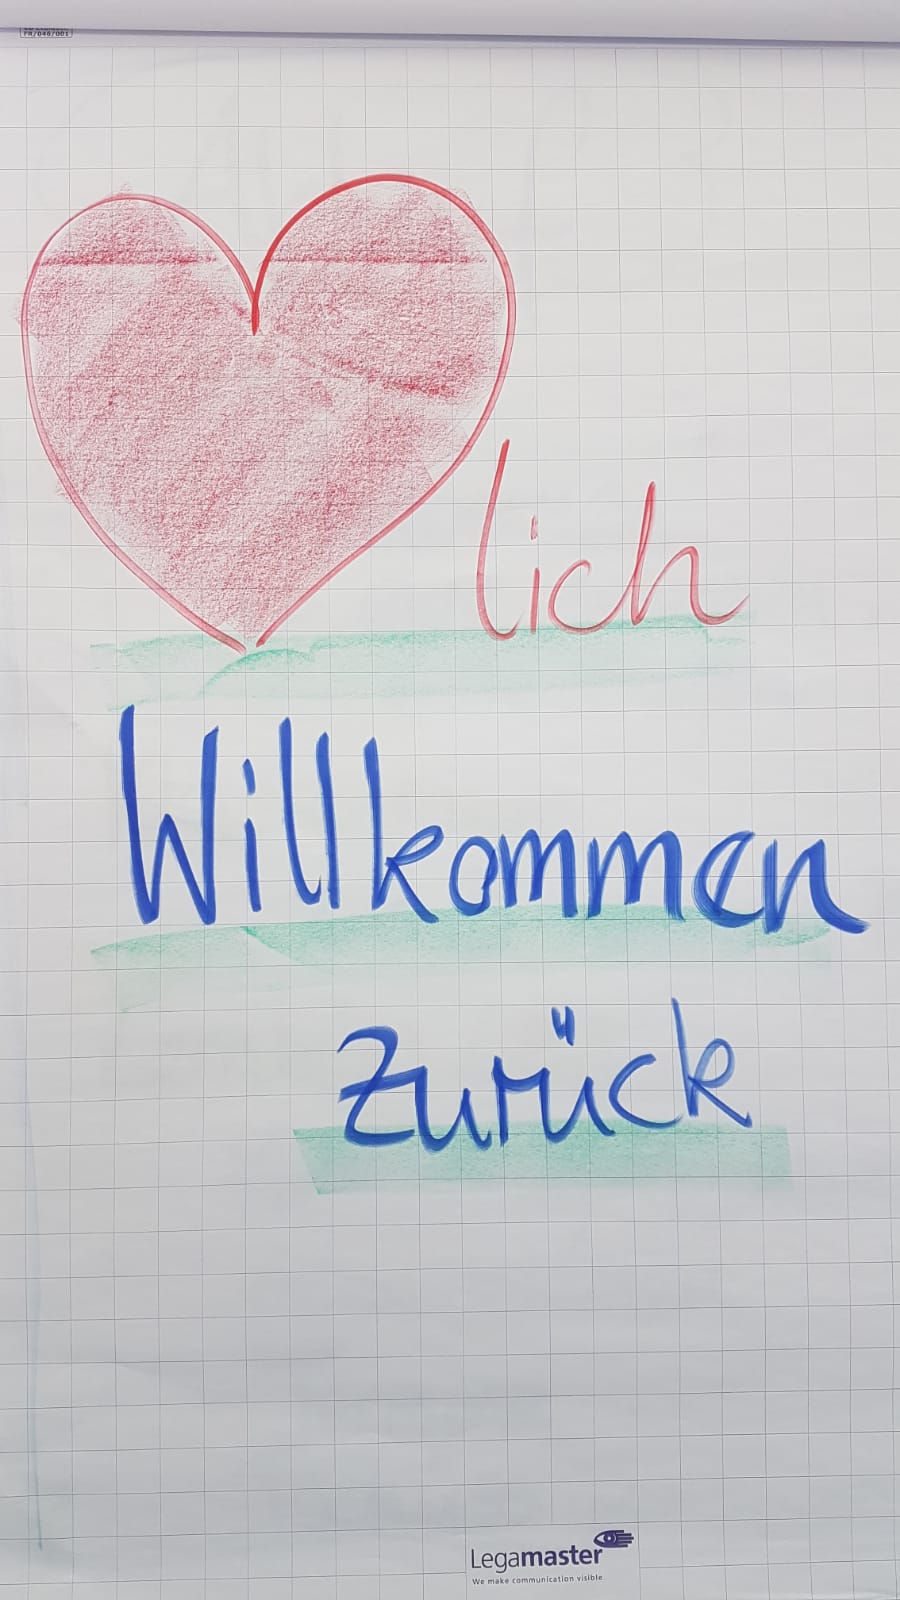 FR/046/001
lich
Willkommen
Zurück
Legamaster
We make communication visible